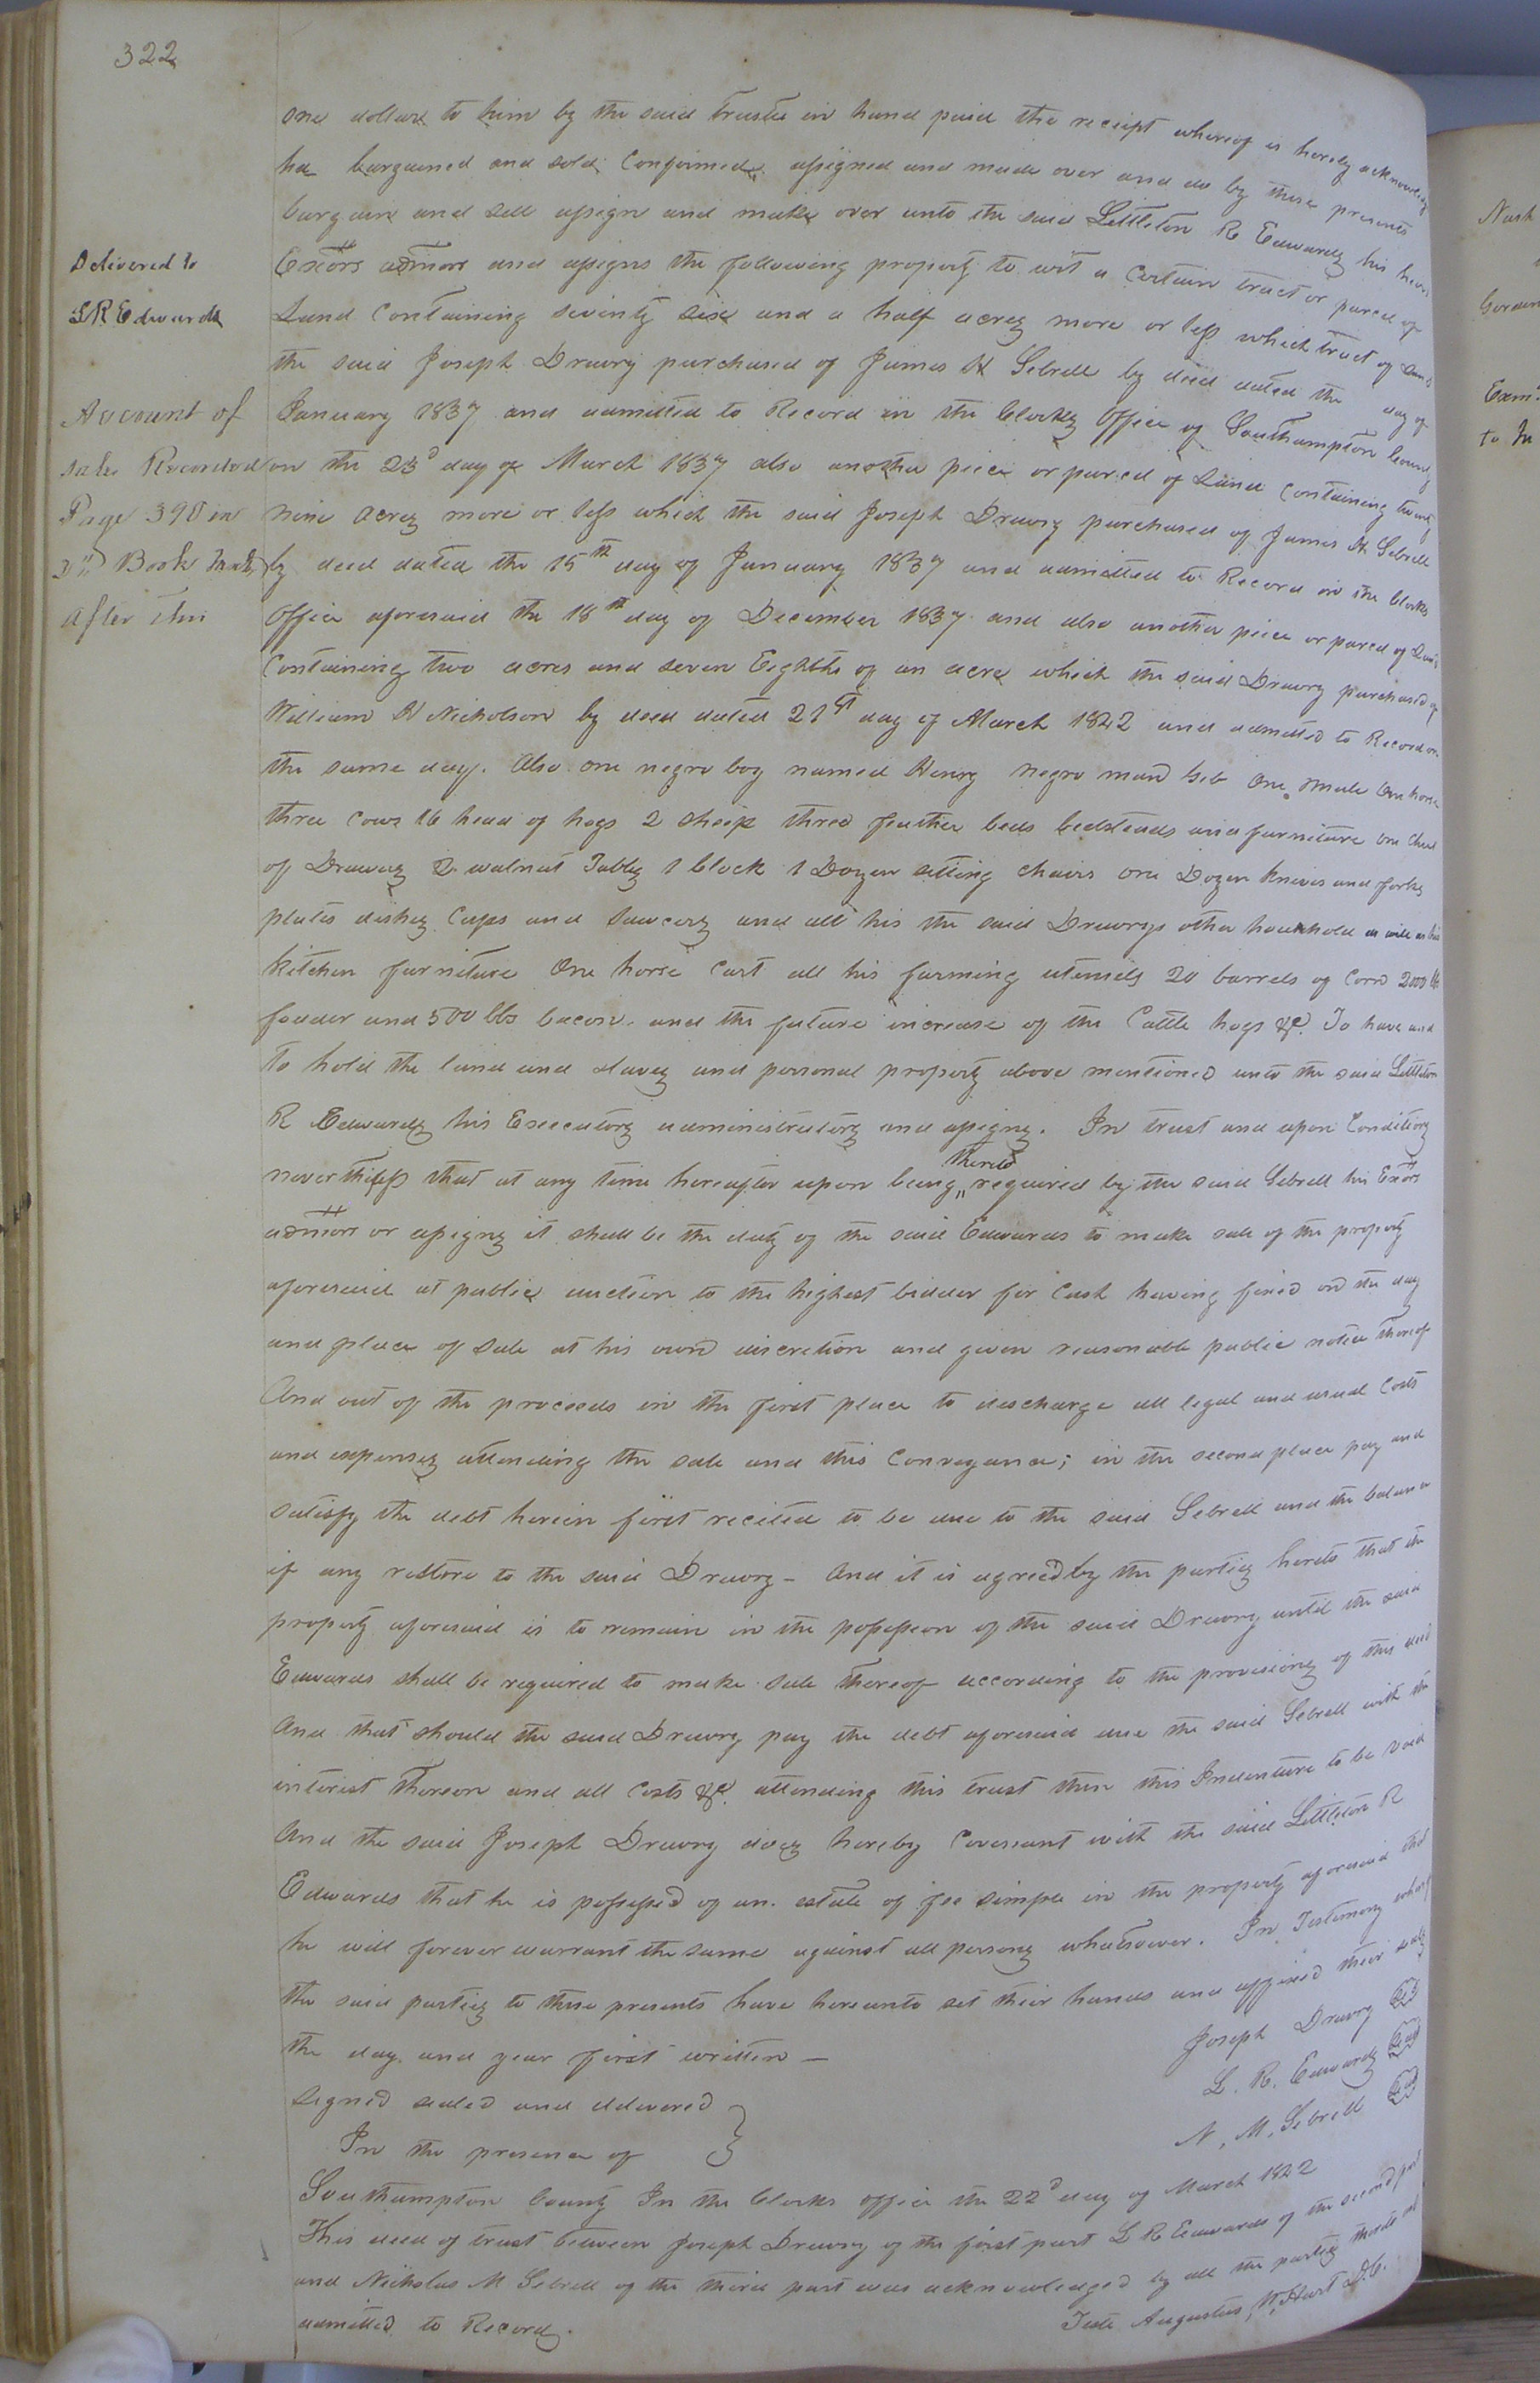 322
one dollar to him by the said trustee in hand paid the receipt whereof is hereby acknowledg
ha bargained and sold, Confirmed, assigned and made over and do by these presents
bargain and sell assign and make over unto the said Littleton R Edwards his heirs
Delivered to
L R Edwards
Exors admors and assigns the following property to wit a certain tract or parcel of
Land Containing seventy six and a half acres more or less which tract of Land
the said Joseph Drewry purchased of James H Sebrell by deed dated the day of
Account of
sales Recorded
Page 398 in
D" Book
after this
January 1837 and admitted to Record in the Clerks Office of Southampton County
on the 23d day of March 1837 also another piece or parcel of Land containing twenty
nine acres more or less which the said Joseph Drewry purchased of James H Sebrell
by deed dated the 15th day of January 1837 and admitted to Record in the Clerks
Office aforesaid the 18th day of December 1837 and also another piece or parcel of Land
Containing two acres and seven Eighths of an acre which the said Drewry purchased of
William H Nicholson by deed dated 21st day of March 1842 and admitted to Record on
the same day. Also one negro boy named Henry negro man one mule one horse
three cows 16 head of hogs 2 sheep three feather beds bedsteads and furniture one Chest
of Drawers 2 walnut Tables 1 Clock 1 Dozen sitting chairs one Dozen knives and forks
plates dishes Cups and Saucers and all his the said Drewrys other household as well as his
kitchen furniture One horse Cart all his farming utensils 20 barrels of Corn 2000 lbs
fodder and 500 lbs bacon. and the future increase of the Cattle hogs &c. To have and
to hold the land and slaves and personal property above mentioned unto the said Littleton
R Edwards his Executors administrators and assigns. In trust and upon Conditions
nevertheless that at any time hereafter upon being thereto required by the said Sebrell his Exors
admors or assigns it shall be the duty of the said Edwards to make sale of the property
aforesaid at public auction to the highest bidder for Cash having fixed on the day
and place of sale at his own discretion and given reasonable public notice thereof
And out of the proceeds in the first place to discharge all legal and usual Costs
and expenses attending the sale and this Conveyance; in the second place pay and
satisfy the debt herein first recited to be due to the said Sebrell and the balance
if any restore to the said Drewry - And it is agreed by the parties hereto that the
property aforesaid is to remain in the possession of the said Drewry until the said
Edwards shall be required to make sale thereof according to the provisions of this deed
And that should the said Drewry pay the debt aforesaid due the said Sebrell with the
interest thereon and all Costs &c. attending this trust then this Indenture to be void
And the said Joseph Drewry does hereby Covenant with the said Littleton R
Edwards that he is possessed of an estate of fee simple in the property aforesaid that
he will forever warrant the same against all persons whatsoever. In Testimony whereof
the said parties to these presents have hereunto set their hands and affixed their seals
the day and year first written -
Joseph Drewry Seal
Signed sealed and delivered
L. R. Edwards Seal
In the presence of
N. M. Sebrell Seal
Southampton County In the Clerks office the 22d day of March 1842
This deed of trust between Joseph Drewry of the first part L R Edwards of the second part
and Nicholas M Sebrell of the third part was acknowledged by all the parties thereto and
admitted to Record.
Teste Augustus W, Hart D.C.
Nash
Exm:
to